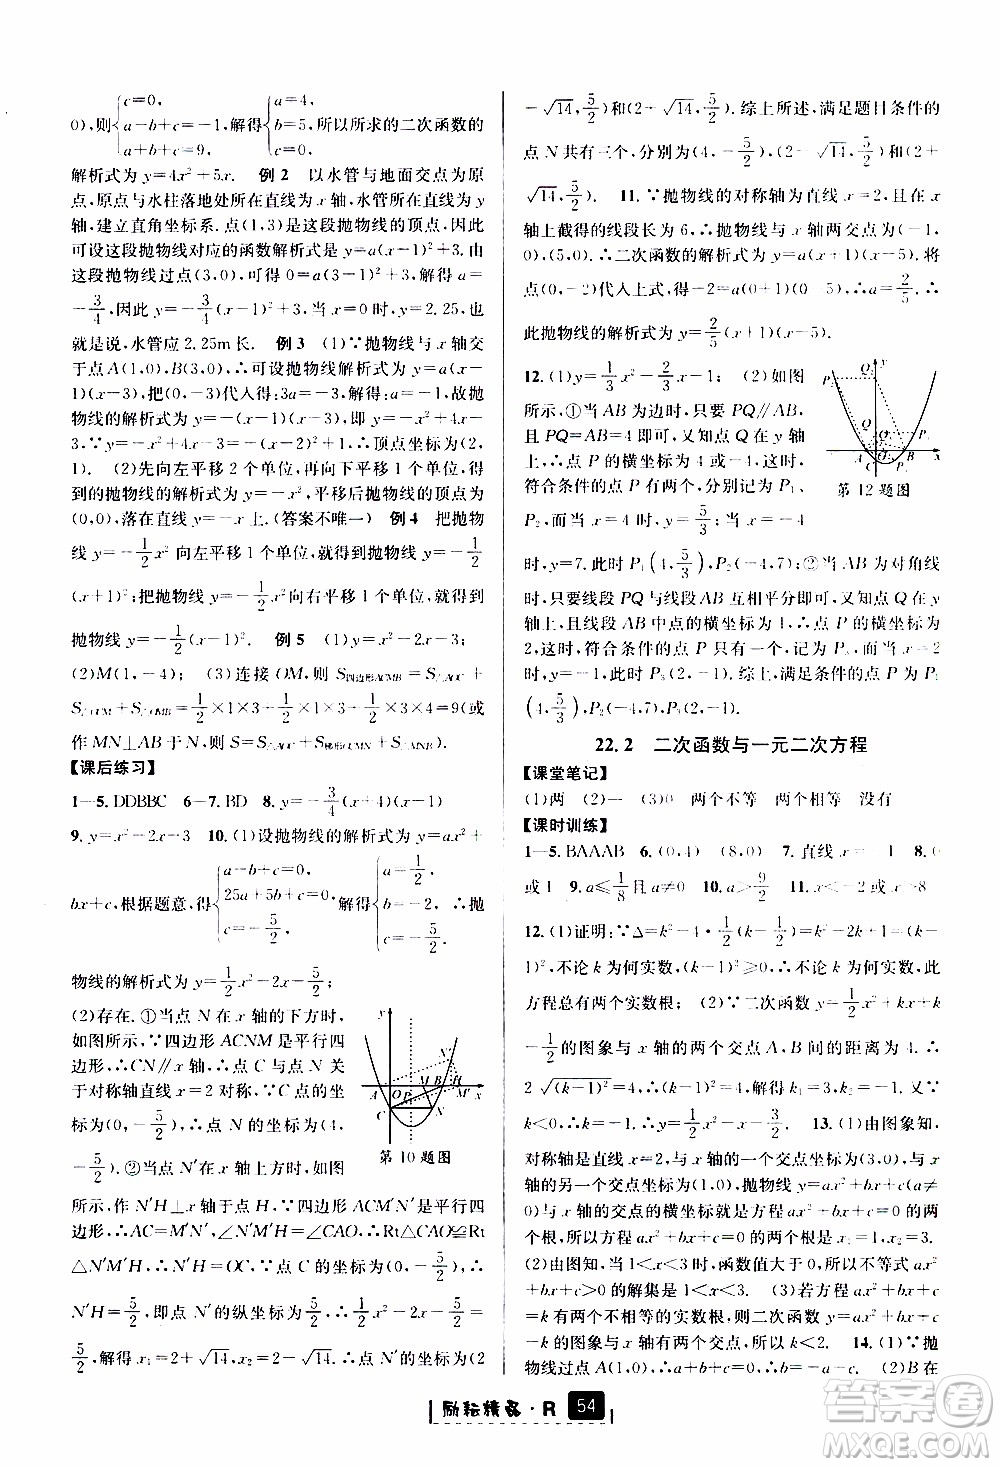 0),则{c=0, a-b+c=-1, a+b+c=9,解得{a=4, b=5, c=0.所以所求的二次函数的
解析式为y=4x²+5x. 例2 以水管与地面交点为原
点,原点与水柱落地处所在直线为x轴,水管所在直线为y
轴,建立直角坐标系.点(1,3)是这段抛物线的顶点,因此
可设这段抛物线对应的函数解析式是y=a(x-1)²+3.由
这段抛物线过点(3,0),可得0=a(3-1)²+3.解得a=
-3/4.∴y=-3/4(x-1)²+3,当x=0时,y=2.25,也
就是说,水管应2.25m长. 例3 (1)∵抛物线与x轴交
于点A(1,0),B(3,0)∴可设抛物线解析式为y=a(x-
1)(x-3)把(0,-3)代入得:3a=-3,解得:a=-1,故抛
物线的解析式为y=-(x-1)(x-3),即y=-x²+4x-
3.∵y=-x²+4x-3=-(x-2)²+1∴顶点坐标为(2,
1). (2)先向左平移2个单位,再向下平移1个单位,得
到的抛物线的解析式为y=-x²,平移后抛物线的顶点为
(0,0),落在直线y=-x上.(答案不唯一) 例4 把抛物
线y=-1/2x²向左平移1个单位,就得到抛物线y=
-1/2(x+1)²;把抛物线y=-1/2x²向右平移1个单位,就得到
抛物线y=-1/2(x-1)². 例5 (1)y=x²-2x-3;
(2)M(1,-4); (3)连接OM,则S四边形ACMB=S△AOC
+S△OCM+S△OMB=1/2×1×3+1/2×3×1+1/2×3×4=9(或
作MN⊥AB于N,则S=S△AOC+S梯形OCMN+S△MNB).
【课后练习】
1—5.DDBBC 6—7.BD 8.y=-3/4(x+2)(x-1)
9.y=x²-2x-3 10.(1)设抛物线的解析式为y=ax²+
bx+c,根据题意,得{a-b+c=0, 25a+5b+c=0, c=-5/2.解得{a=1/2, b=-2, c=-5/2.∴抛
物线的解析式为y=1/2x²-2x-5/2.
(2)存在.①当点N在x轴的下方时,
如图所示,∵四边形ACNM是平行四
边形,∴CN∥x轴,∴点C与点N关
于对称轴直线x=2对称,∵C点的坐
标为(0,-5/2),∴点N的坐标为(4,
-5/2).②当点N′在x轴上方时,如图
第10题图
所示,作N′H⊥x轴于点H,∵四边形ACM′N′是平行四
边形,∴AC=M′N′,∠N′M′H=∠CAO∴Rt△CAO≌Rt
△N′M′H,∴N′H=OC,∵点C的坐标为(0,-5/2),
∴N′H=5/2,即点N的纵坐标为5/2,∴1/2x²-2x-5/2=
5/2,解得x₁=2+√14,x₂=2-√14.∴点N′的坐标为(2
-√14,5/2)和(2+√14,5/2).综上所述,满足题目条件的
点N共有三个,分别为(4,-5/2),(2-√14,5/2)和(2+
√14,5/2). 11.∵抛物线的对称轴为直线x=2,且在x
轴上截得的线段长为6,∴抛物线与x轴的交点为(-1,
0),(5,0).∴二次函数的解析式为y=a(x+1)(x-5).将
点(0,-2)代入上式,得-2=a(0+1)(0-5)∴a=2/5.∴
此抛物线的解析式为y=2/5(x+1)(x-5).
12.(1)y=1/3x²-2/3x-1; (2)如图
所示,①当AB为边时,只要PQ∥AB且
PQ=AB=4即可,又知点Q在y轴
上,∴点P的横坐标为-4或4,这时
符合条件的点P有两个,分别记为P₁,
P₂,而当x=4时,y=5/3;当x=-4
第12题图
时,y=7.此时P₁(4,5/3),P₂(-4,7);②当AB为对角线
时,只要线段PQ与线段AB互相平分即可,又知点Q在y
轴上,且线段AB中点的横坐标为1,∴点P的横坐标为
2,这时,符合条件的P只有一个记为P₃,而当x=2
时,y=-1,此时P₃(2,-1),综上,满足条件的点P为P₁
(4,5/3),P₂(-4,7),P₃(2,-1).
22.2 二次函数与一元二次方程
【课堂笔记】
(1)两 (2)一 (3)0 两个不等 两个相等 没有
【课时训练】
1—5.BAAAB 6.(0,4) (8,0) 7.直线x=-1 8.0
或1 9.a≤1/8且a≠0 10.a>9/2 11.x<-2或x>8
12.(1)证明:∵Δ=k²-4·1/2(k-1/2)=k²-2k+1=(k-
1)²,不论k为何实数,(k-1)²≥0,∴不论k为何实数,此
方程总有两个实数根; (2)∵二次函数y=1/2x²+kx+k
-1/2的图象与x轴的两个交点A、B间的距离为4.∴
2√(k-1)²=4,解得k₁=3,k₂=-1.又∵
k<0∴k=-1∴y=1/2x²-x-3/2. 13.(1)由图象知,
对称轴是直线x=2,与x轴的一个交点为(3,0),∴与x
轴另一个交点坐标为(1,0),抛物线y=ax²+bx+c(a≠
0)与x轴的交点的横坐标就是方程ax²+bx+c=0的两
个根,∴方程ax²+bx+c=0的两个根为:x₁=1,x₂=3.
(2)由图可知,当1<x<3时,函数值y>0,所以不等式ax²
+bx+c>0的解集为1<x<3. (3)若方程ax²+bx+c
=k有两个不相等的实数根,则二次函数y=ax²+bx+c
-k的图象与x轴有两个交点,所以k<2. 14.(1)∵抛
物线过点A(1,0),∴a+c=0.∴a=-c. (2)B在
励耘精品·R 54
答案圈
MXQE.COM